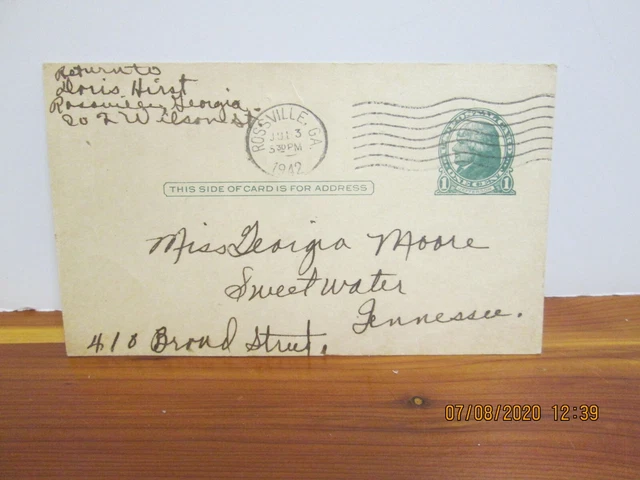 Return to
Doris Hirst
Rossville, Georgia.
202 Wilson St.
ROSSVILLE, GA.
3
530 PM
1942
1 1
THIS SIDE OF CARD IS FOR ADDRESS
Miss Georgia Moore
Sweetwater
Tennessee.
410 Broad Street.
07/08/2020 12:39